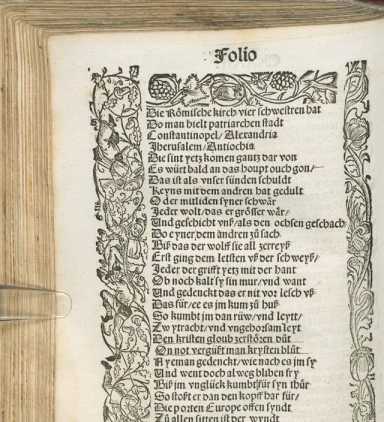 Folio
Die Römische kirch vier schwestren hat
Do man hielt patriarchen stadt
Constantinopel/ Alexandria
Jherusalem/ Antiochia
Die sint yetz komen gantz dar von
Es würt bald an das houpt ouch gon/
Das ist als vnser sünden schuldt
Keyns mit dem andren hat gedult
O der mitliden syner schwär
Jeder wolt/das er grösser wär/
Vnd geschicht vnß/als den ochsen geschach
Do eyner dem andren zů sach
Biß das der wolff sie all zerreyß
Erst ging dem letsten vß der schweyß/
Jeder der grifft yetz mit der hant
Ob noch kalt sy sin mur/vnd want
Vnd gedenckt das er nit vor lesch vß
Das für/ee es jm kum zů huß
So kumbt jm dan rüw/vnd leytt/
Zwytracht/vnd vngehorsam leyt
Den kristen gloub zerstören důt
On not vergüßt man krysten blůt
Nyeman gedenckt/wie nach es jm sy
Vnd went doch alweg bliben fry
Biß jm vnglück kumbt für syn thür
So stoßt er dan den kopff dar für/
Die porten Europe offen syndt
Zů allen sitten ist der vyndt